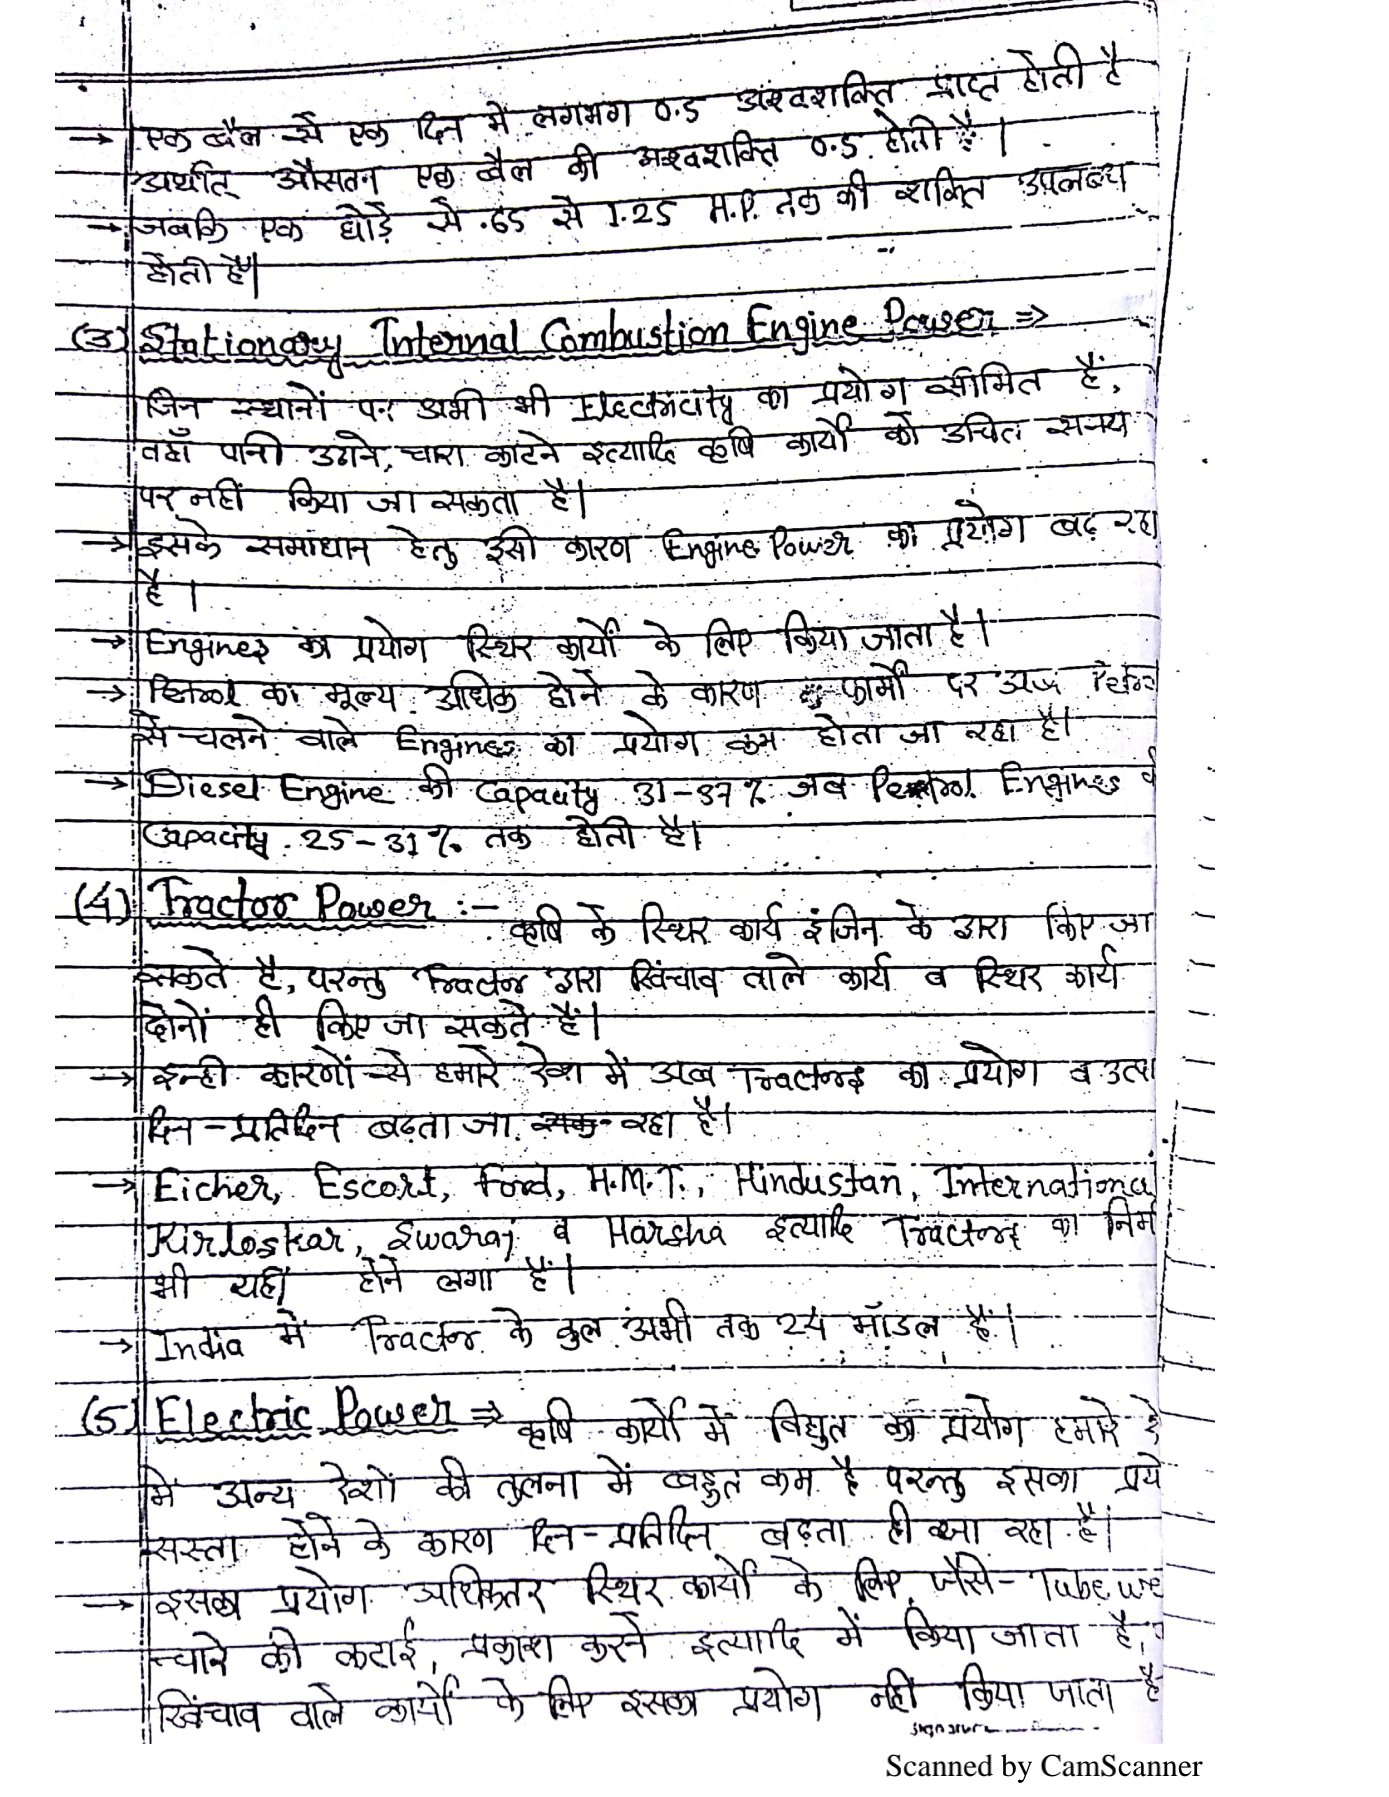 → एक बैल से एक दिन में लगभग 0.5 अश्वशक्ति प्राप्त होती है
अर्थात् औसतन एक बैल की अश्वशक्ति 0.5 होती है।
→ जबकि एक घोड़े से .65 से 1.25 H.P. तक की शक्ति उपलब्ध
होती है।
(3) Stationary Internal Combustion Engine Power ⇒
जिन स्थानों पर अभी भी Electricity का प्रयोग सीमित है,
वहाँ पानी उठाने, चारा काटने इत्यादि कृषि कार्यों को उचित समय
पर नहीं किया जा सकता है।
→ इसके समाधान हेतु इसी कारण Engine Power का प्रयोग बढ़ रहा
है।
→ Engines का प्रयोग स्थिर कार्यों के लिए किया जाता है।
→ Petrol का मूल्य अधिक होने के कारण फार्मों पर अब
से चलने वाले Engines का प्रयोग कम होता जा रहा है।
→ Diesel Engine की Capacity 31-37% जब Petrol Engines
Capacity 25-31% तक होती है।
(4) Tractor Power :-
कृषि के स्थिर कार्य इंजिन के द्वारा किए जा
सकते है, परन्तु Tractor द्वारा खिंचाव वाले कार्य व स्थिर कार्य
दोनों ही किए जा सकते हैं।
→ इन्ही कारणों से हमारे देश में अब Tractors का प्रयोग व
दिन-प्रतिदिन बढ़ता जा रहा है।
→ Eicher, Escort, Ford, H.M.T., Hindustan, International
Kirloskar, Swaraj व Harsha इत्यादि Tractors का
भी यहीं होने लगा है।
→ India में Tractor के कुल अभी तक 24 मॉडल हैं।
(5) Electric Power ⇒ कृषि कार्यों में विद्युत का प्रयोग हमारे
में अन्य देशों की तुलना में बहुत कम है परन्तु इसका
सस्ता होने के कारण दिन-प्रतिदिन बढ़ता ही जा रहा है।
→ इसका प्रयोग अधिकतर स्थिर कार्यों के लिए जैसे-
चारे की कटाई, प्रकाश करने इत्यादि में किया जाता है,
खिंचाव वाले कार्यों के लिए इसका प्रयोग नहीं किया जाता है
Signature
Scanned by CamScanner